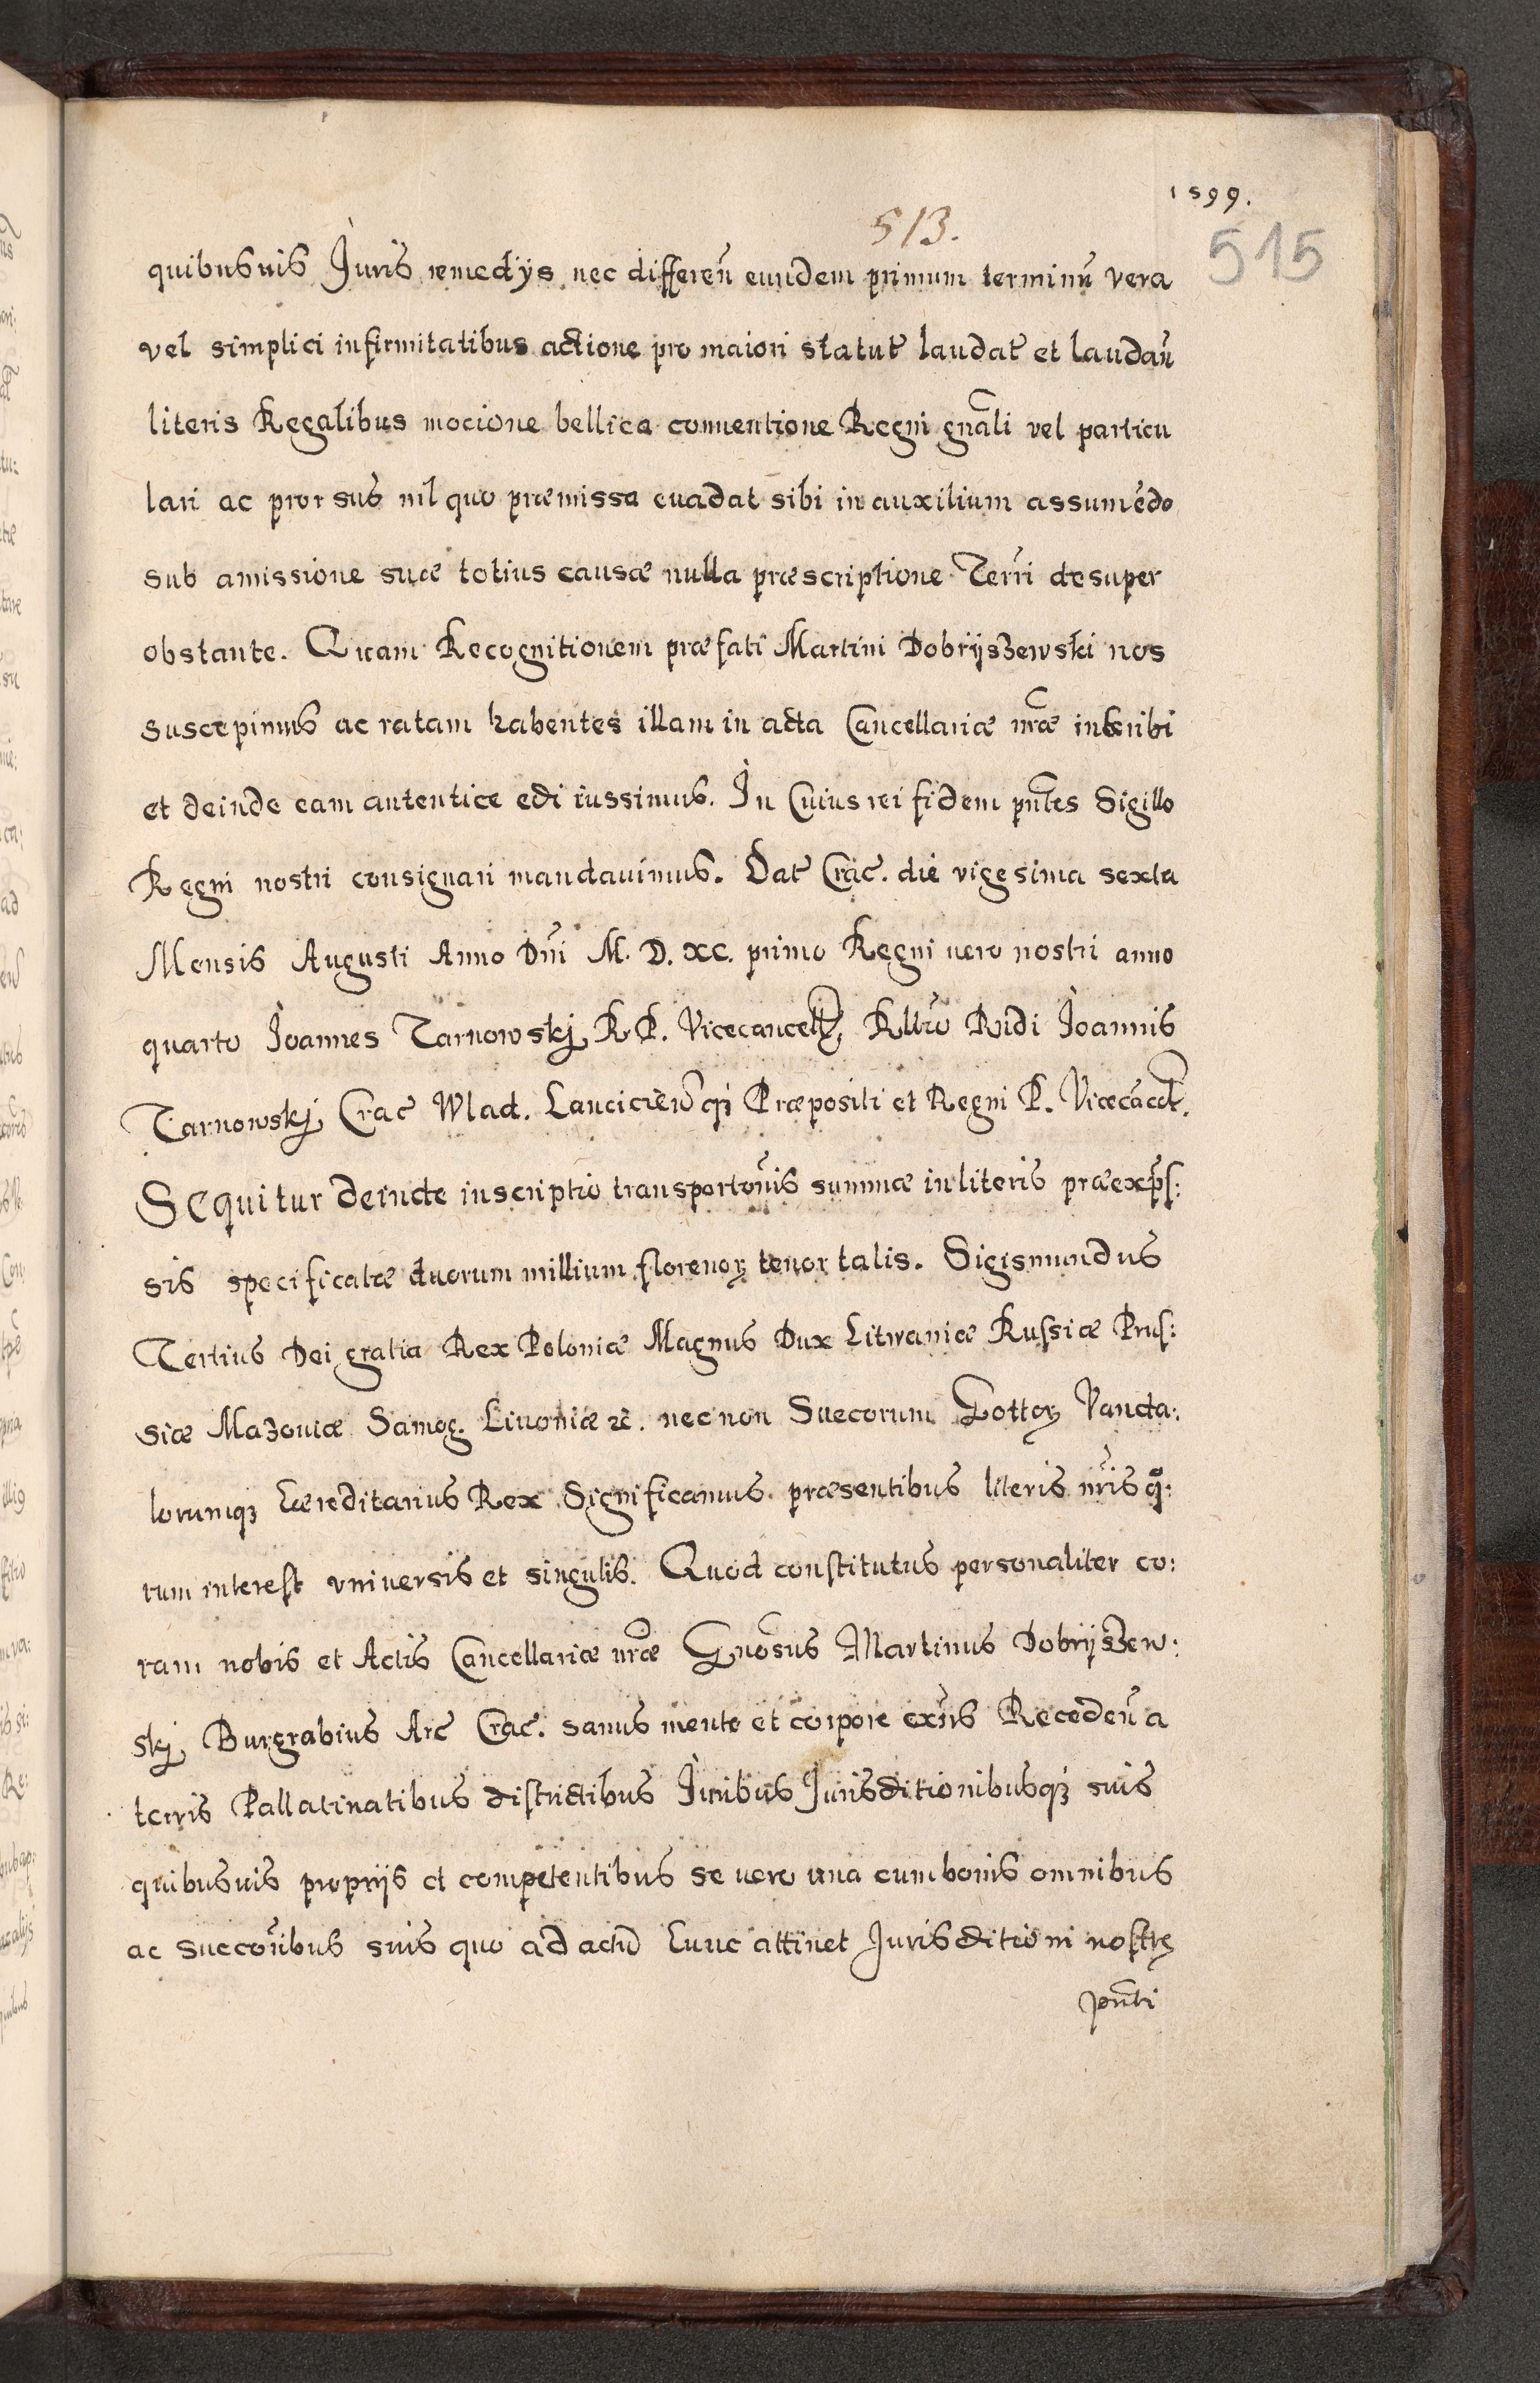 1599.
513.
515
quibusuis Juris remedÿs nec differeñ eundem primum terminũ vera
vel simplici infirmitatibus actione pro maiori statut̃ laudat̃ et laudañ
literis Regalibus mocione bellica conuentione Regni gñali vel particu
lari ac prorsus nil quo præmissa euadat sibi in auxilium assumẽdo
sub amissione suæ totius causæ nulla præscriptione Terr̃i desuper
obstante. Quam Recognitionem præfati Martini Dobrijszewski nos
suscepimus ac ratam habentes illam in acta Cancellariæ nr̃æ inscribi
et deinde eam autentice edi iussimus. In Cuius rei fidem pñtes Sigillo
Regni nostri consignari mandauimus. Dat̃ Crac̃. die vigesima sexta
Mensis Augusti Anno Dñi M. D. XC. primo Regni vero nostri anno
quarto Joannes Tarnowskj R. P. Vicecancell̃, Rel̃tio R̃ndi Joannis
Tarnowskj Crac̃ Wlad. Lancicieñ qȝ Præpositi et Regni P. Vicecãcel̃.
Sequitur deinde inscriptio transportõnis summæ in literis præexp̃s:
sis specificatæ duorum millium florenoꝝ tenor talis. Sigismundus
Tertius Dei gratia Rex Poloniæ Magnus Dux Litwaniæ Russiæ Prus:
siæ Mazouiæ Samog. Liuoniæ ꝛc̃. nec non Suecorum Gottoꝝ Vanda:
lorumqȝ Hæreditarius Rex Significamus præsentibus literis nr̃is quo:
rum interest vniversis et singulis. Quod constitutus personaliter co:
ram nobis et Actis Cancellariæ nr̃æ Gñosus Martinus Dobrijszew:
skj Burgrabius Arc̃ Crac̃. sanus mente et corpore exñs Recedeñ a
terris Pallatinatibus districtibus Juribus Jurisditionibusqȝ suis
quibusuis proprijs et competentibus se vero una cum bonis omnibus
ac succõribus suis quo ad actũ hunc attinet Jurisditioni nostrę
pñti